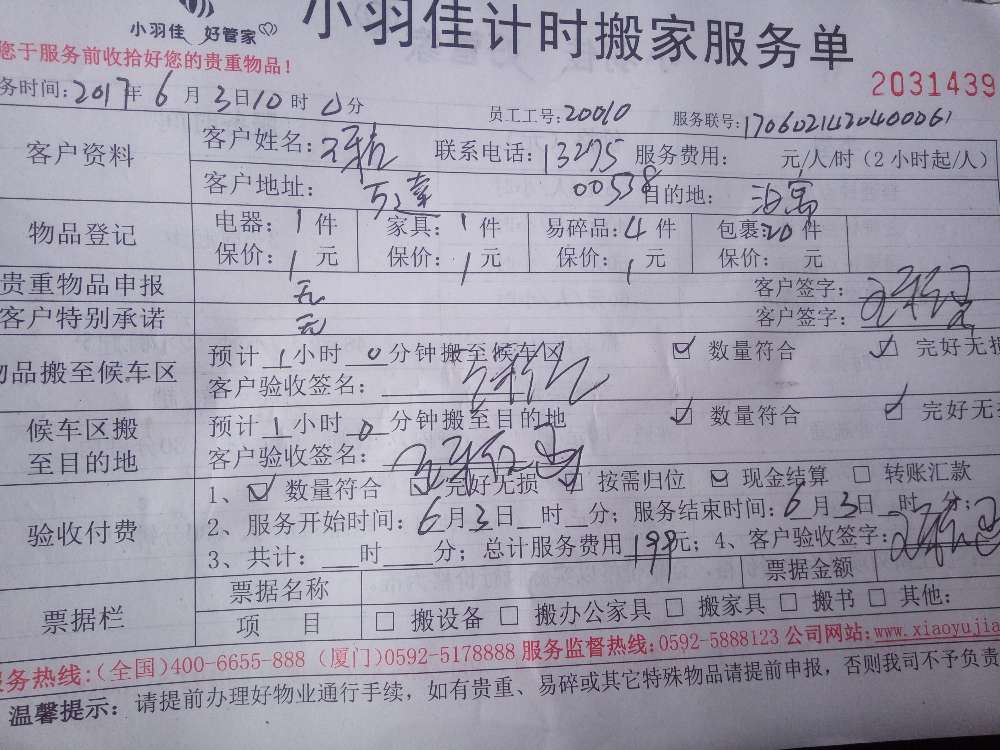 小羽佳 好管家
小羽佳计时搬家服务单
您于服务前收拾好您的贵重物品！
2031439
务时间：2017年6月3日10时0分
员工工号：20010
服务联号：1706021420400061
客户资料
客户姓名：
联系电话：13275 00538
服务费用： 元/人/时（2小时起/人）
客户地址：万达
目的地：
物品登记
电器：1件 家具：1件 易碎品：4件 包裹：20件
保价：1元 保价：1元 保价：1元 保价： 元
贵重物品申报 无 客户签字：
客户特别承诺 无 客户签字：
物品搬至候车区
预计1小时0分钟搬至候车区 ☑ 数量符合 ☑ 完好无损
客户验收签名：
候车区搬至目的地
预计1小时0分钟搬至目的地 ☑ 数量符合 ☑ 完好无
客户验收签名：
验收付费
1、☑ 数量符合 ☑ 完好无损 ☑ 按需归位 ☑ 现金结算 ☐ 转账汇款
2、服务开始时间：6月3日__时__分；服务结束时间：6月3日__时__分；
3、共计：___时____分；总计服务费用199元；4、客户验收签字：
票据栏
票据名称 票据金额
项 目 ☐ 搬设备 ☐ 搬办公家具 ☐ 搬家具 ☐ 搬书 ☐ 其他：
服务热线：（全国）400-6655-888（厦门）0592-5178888 服务监督热线：0592-5888123 公司网站：www.xiaoyujia
温馨提示：请提前办理好物业通行手续，如有贵重、易碎或其它特殊物品请提前申报，否则我司不予负责